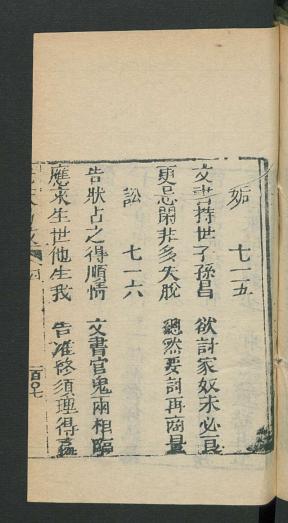 妬　七一五
文書持世子孫昌　欲討家奴未必亘
更忌閑非多失脫　總然要討再商量
訟　七一六
告狀占之得順情　文書官鬼兩相臨
應來生世他生我　告准終須理得贏